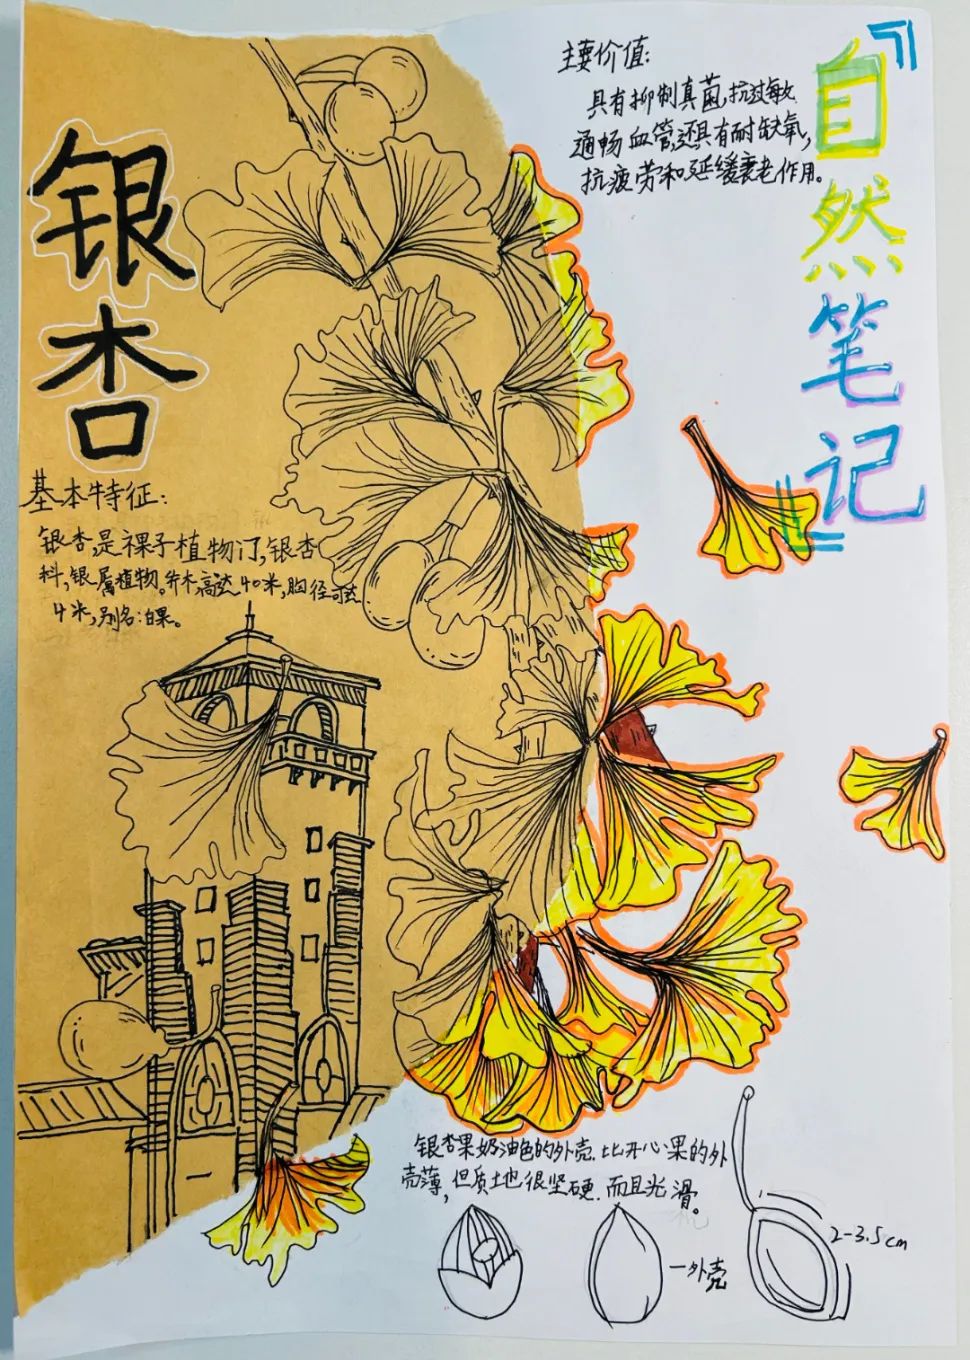 『自然笔记』
银杏
主要价值:
具有抑制真菌,抗过敏
通畅血管,还具有耐缺氧,
抗疲劳和延缓衰老作用。
基本特征:
银杏,是裸子植物门,银杏
科,银属植物。乔木,高达40米,胸径可达
4米,别名:白果。
银杏果奶油色的外壳.比开心果的外
壳薄,但质地很坚硬.而且光滑。
外壳
2-3.5cm